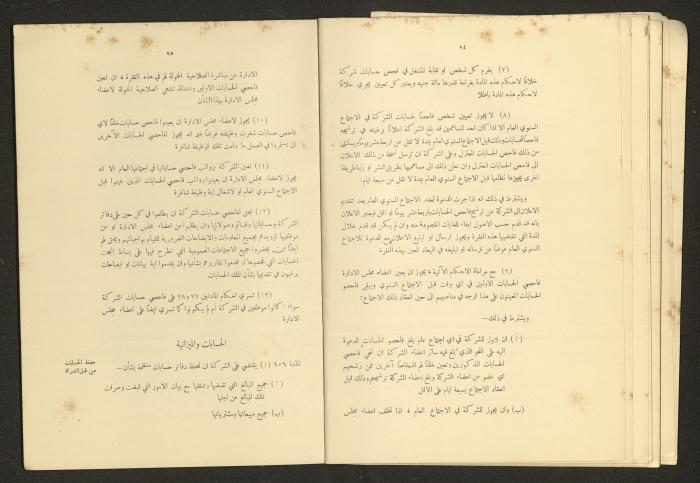 ٦٤
(٧) يغرم كل شخص او نقابة تشتغل في فحص حسابات شركة
خلافًا لاحكام هذه المادة بغرامة قدرها مائة جنيه ويعتبر كل تعيين يجري خلافًا
لاحكام هذه المادة باطلا
(٨) لا يجوز تعيين شخص فاحصًا لحسابات الشركة في الاجتماع
السنوي العام الا اذا كان احد المساهمين قد بلغ الشركة اعلانًا برغبته في ترشيحه
فاحصًا للحسابات وذلك قبل الاجتماع السنوي العام بمدة لا تقل عن اربعة عشر يومًا
من ذلك فاحص الحسابات المعتزل وعلى الشركة ان ترسل نسخة من ذلك الاعلان
الى فاحص الحسابات المعتزل وان تعلن ذلك الى مساهميها بطريق النشر او باية طريقة
اخرى يجيزها نظامها قبل الاجتماع السنوي العام بمدة لا تقل عن سبعة ايام:
ويشترط في ذلك انه اذا جرت الدعوة لعقد الاجتماع السنوي العام بعد تقديم
الاعلان الى الشركة عن ترشيح فاحص الحسابات باربعة عشر يومًا او اقل فيعتبر الاعلان
بانه قد قدم حسب الاصول ايفاء للغايات المقصودة منه وان لم يكن قد قدم خلال
المدة التي تقتضيها هذه الفقرة ويجوز ارسال او تبليغ الاعلان مع الدعوة للاجتماع
السنوي العام عوضًا عن ارساله او تبليغه في الميعاد المعين بهذه الفقرة
(٩) مع مراعاة الاحكام الآتية، يجوز ان يعين اعضاء مجلس الادارة
فاحصي الحسابات الاولين في اي وقت قبل الاجتماع السنوي ويبقى فاحصو
الحسابات المعينون على هذا الوجه في مناصبهم الى حين انعقاد ذلك الاجتماع:
ويشترط في ذلك—
(أ) ان يجوز للشركة في اي اجتماع عام بلغ فاحصو الحسابات الدعوة
اليه على النحو الذي تبلغ فيه سائر اعضاء الشركة ان تنحي فاحصي
الحسابات المذكورين وتعين خلفًا لهم اشخاصًا آخرين ممن رشحهم
اي عضو من اعضاء الشركة وبلغ اعضاء الشركة ترشيحهم وذلك قبل
انعقاد الاجتماع بسبعة ايام على الاقل
(ب) وان يجوز للشركة في الاجتماع العام، اذا تخلف اعضاء مجلس
٦٥
الادارة عن مباشرة الصلاحية المخولة لهم في هذه الفقرة، ان تعين
فاحصي الحسابات الاولين وعندئذ تنتهي الصلاحية المخولة لاعضاء
مجلس الادارة بهذا الشأن
(١٠) يجوز لاعضاء مجلس الادارة ان يعينوا فاحص حسابات خلفًا لاي
فاحص حسابات شغرت وظيفته عرضًا غير انه يجوز لفاحصي الحسابات الآخرين
ان يستمروا في العمل ما دامت تلك الوظيفة شاغرة
(١١) تعين الشركة رواتب فاحصي حساباتها في اجتماعها العام الا انه
يجوز لاعضاء مجلس الادارة ان يعينوا رواتب فاحصي الحسابات الذين عينوا قبل
الاجتماع السنوي العام او لاشغال اية وظيفة شاغرة
(١٢) يحق لفاحصي حسابات الشركة ان يطلعوا في كل حين على دفاتر
الشركة وحساباتها وفساتر وصولاتها وان يطلبوا من اعضاء مجلس الادارة او من
موظفيها تزويدهم بجميع المعلومات والايضاحات الضرورية للقيام بواجباتهم ويحق لهم
ايضًا ان يحضروا جميع الاجتماعات العمومية التي تطرح فيها على بساط البحث
الحسابات التي فحصوها او قدموا تقاريرهم بشأنها وان يقدموا اية بيانات او ايضاحات
يرغبون في تقديمها بشأن تلك الحسابات
(١٣) تسري احكام المادتين ٧٧ و٧٨ على فاحصي حسابات الشركة
سواء أكانوا موظفين في الشركة ام لم يكونوا كما تسري ايضًا على اعضاء مجلس
الادارة
الحسابات والميزانية
حفظ الحسابات
المادة ١٠٦ (١) يقتضي على الشركة ان تحفظ دفاتر حسابات منتظمة بشأن—
(١) جميع المبالغ التي تقبضها وتنفقها مع بيان الامور التي قبضت وصرفت
تلك المبالغ من اجلها
(ب) جميع مبيعاتها ومشترياتها